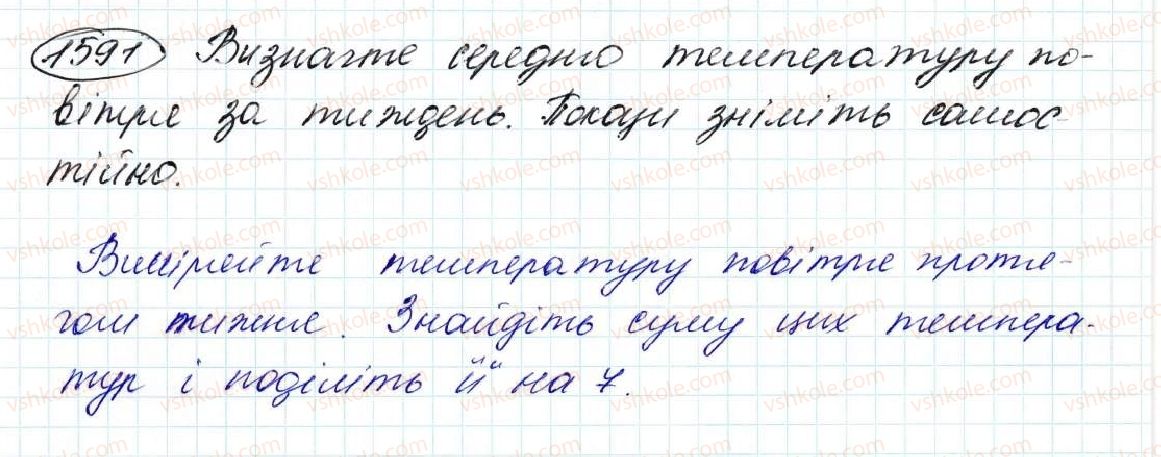 1591 Визначте середню температуру по-
вітря за тиждень. Покази зніміть самос
тійно.
Виміряйте температуру повітря протя-
гом тижня. Знайдіть суму цих темпера-
тур і поділіть її на 7.